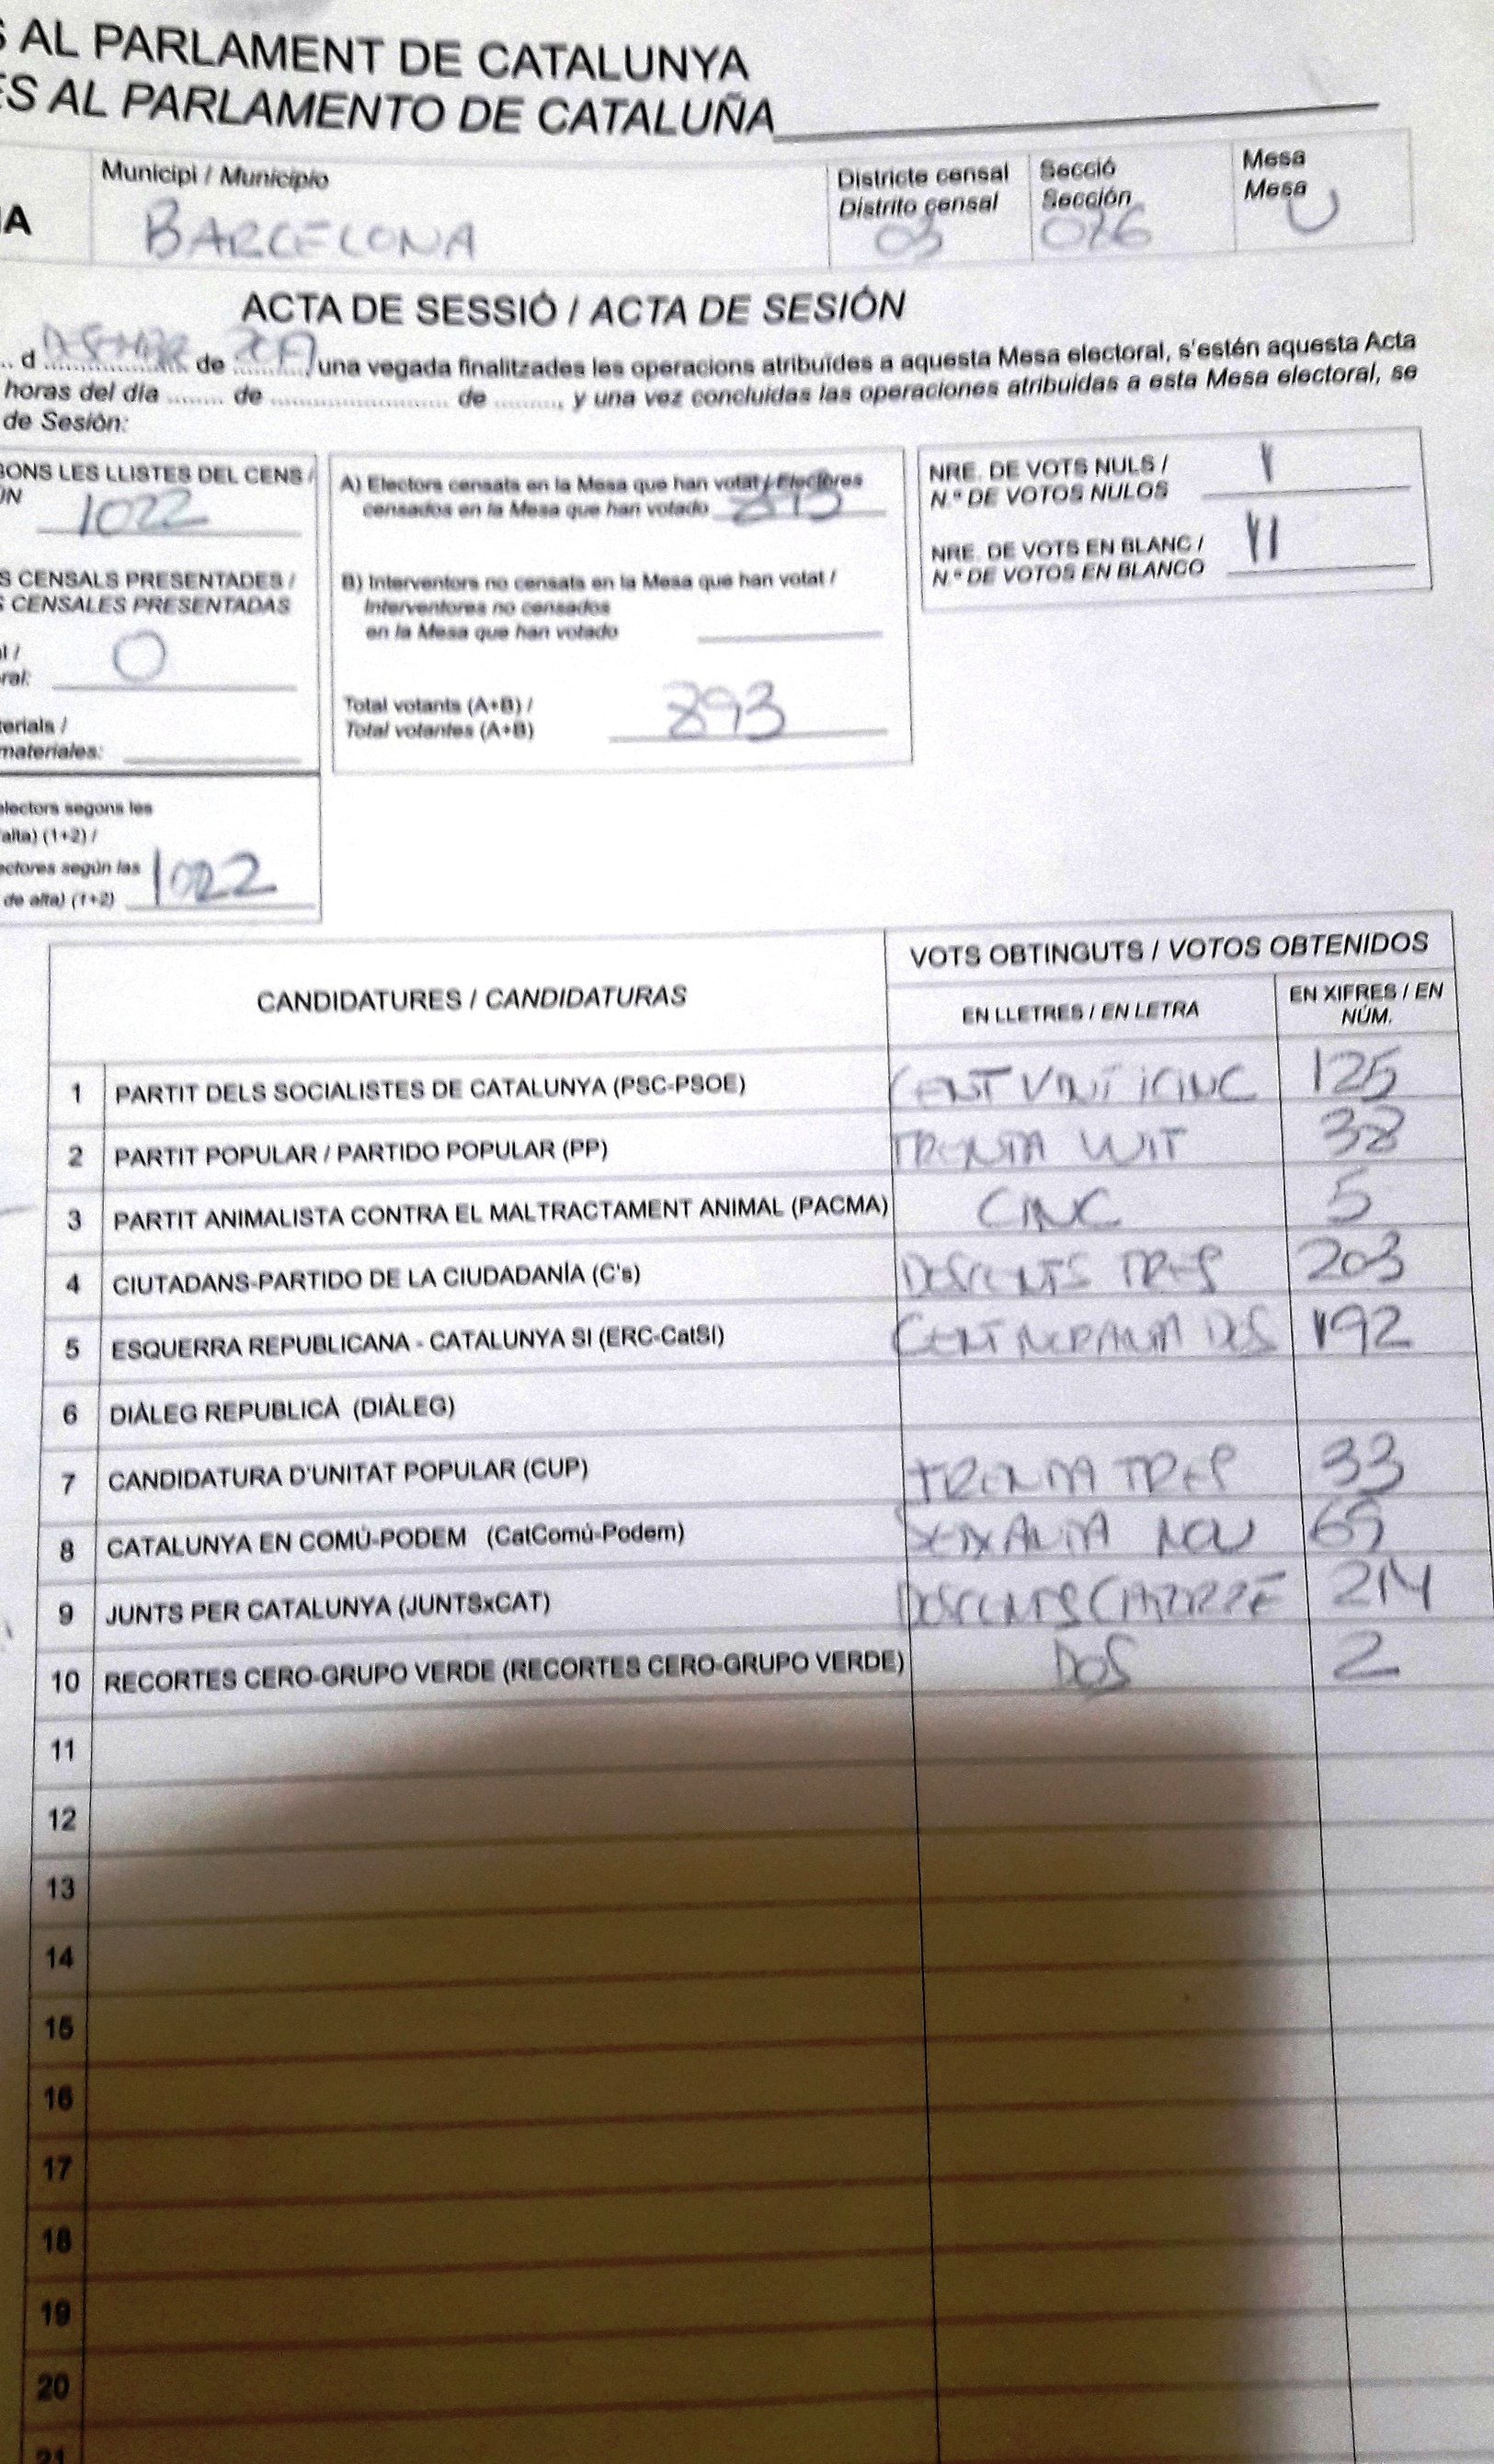 S AL PARLAMENT DE CATALUNYA
ES AL PARLAMENTO DE CATALUÑA
Municipi / Municipio
BARCELONA
Districte censal
Distrito censal
03
Secció
Sección
Mesa
Mesa
U
ACTA DE SESSIÓ / ACTA DE SESIÓN
d de 2017, una vegada finalitzades les operacions atribuïdes a aquesta Mesa electoral, s'estén aquesta Acta
horas del día ........ de ........................ de .........., y una vez concluidas las operaciones atribuidas a esta Mesa electoral, se
de Sesión:
GONS LES LLISTES DEL CENS /
ÚN
1022
S CENSALS PRESENTADES /
S CENSALES PRESENTADAS
al /
ral:
0
terials /
materiales:
electors segons les
alta) (1+2) /
ectores según las
de alta) (1+2)
1022
A) Electors censats en la Mesa que han votat / Electores
censados en la Mesa que han votado 893
B) Interventors no censats en la Mesa que han votat /
Interventores no censados
en la Mesa que han votado
Total votants (A+B) /
Total votantes (A+B)
893
NRE. DE VOTS NULS /
N.º DE VOTOS NULOS
1
NRE. DE VOTS EN BLANC /
N.º DE VOTOS EN BLANCO
11
CANDIDATURES / CANDIDATURAS
VOTS OBTINGUTS / VOTOS OBTENIDOS
EN LLETRES / EN LETRA
EN XIFRES / EN
NÚM.
1 PARTIT DELS SOCIALISTES DE CATALUNYA (PSC-PSOE) CENT VINT I CINC 125
2 PARTIT POPULAR / PARTIDO POPULAR (PP) TRENTA VUIT 38
3 PARTIT ANIMALISTA CONTRA EL MALTRACTAMENT ANIMAL (PACMA) CINC 5
4 CIUTADANS-PARTIDO DE LA CIUDADANÍA (C's) DOSCENTS TRES 203
5 ESQUERRA REPUBLICANA - CATALUNYA SI (ERC-CatSí) CENT NORANTA DOS 192
6 DIÀLEG REPUBLICÀ (DIÀLEG)
7 CANDIDATURA D'UNITAT POPULAR (CUP) TRENTA TRES 33
8 CATALUNYA EN COMÚ-PODEM (CatComú-Podem) SEIXANTA NOU 69
9 JUNTS PER CATALUNYA (JUNTSxCAT) DOSCENTS CATORZE 214
10 RECORTES CERO-GRUPO VERDE (RECORTES CERO-GRUPO VERDE) DOS 2
11
12
13
14
15
16
17
18
19
20
21